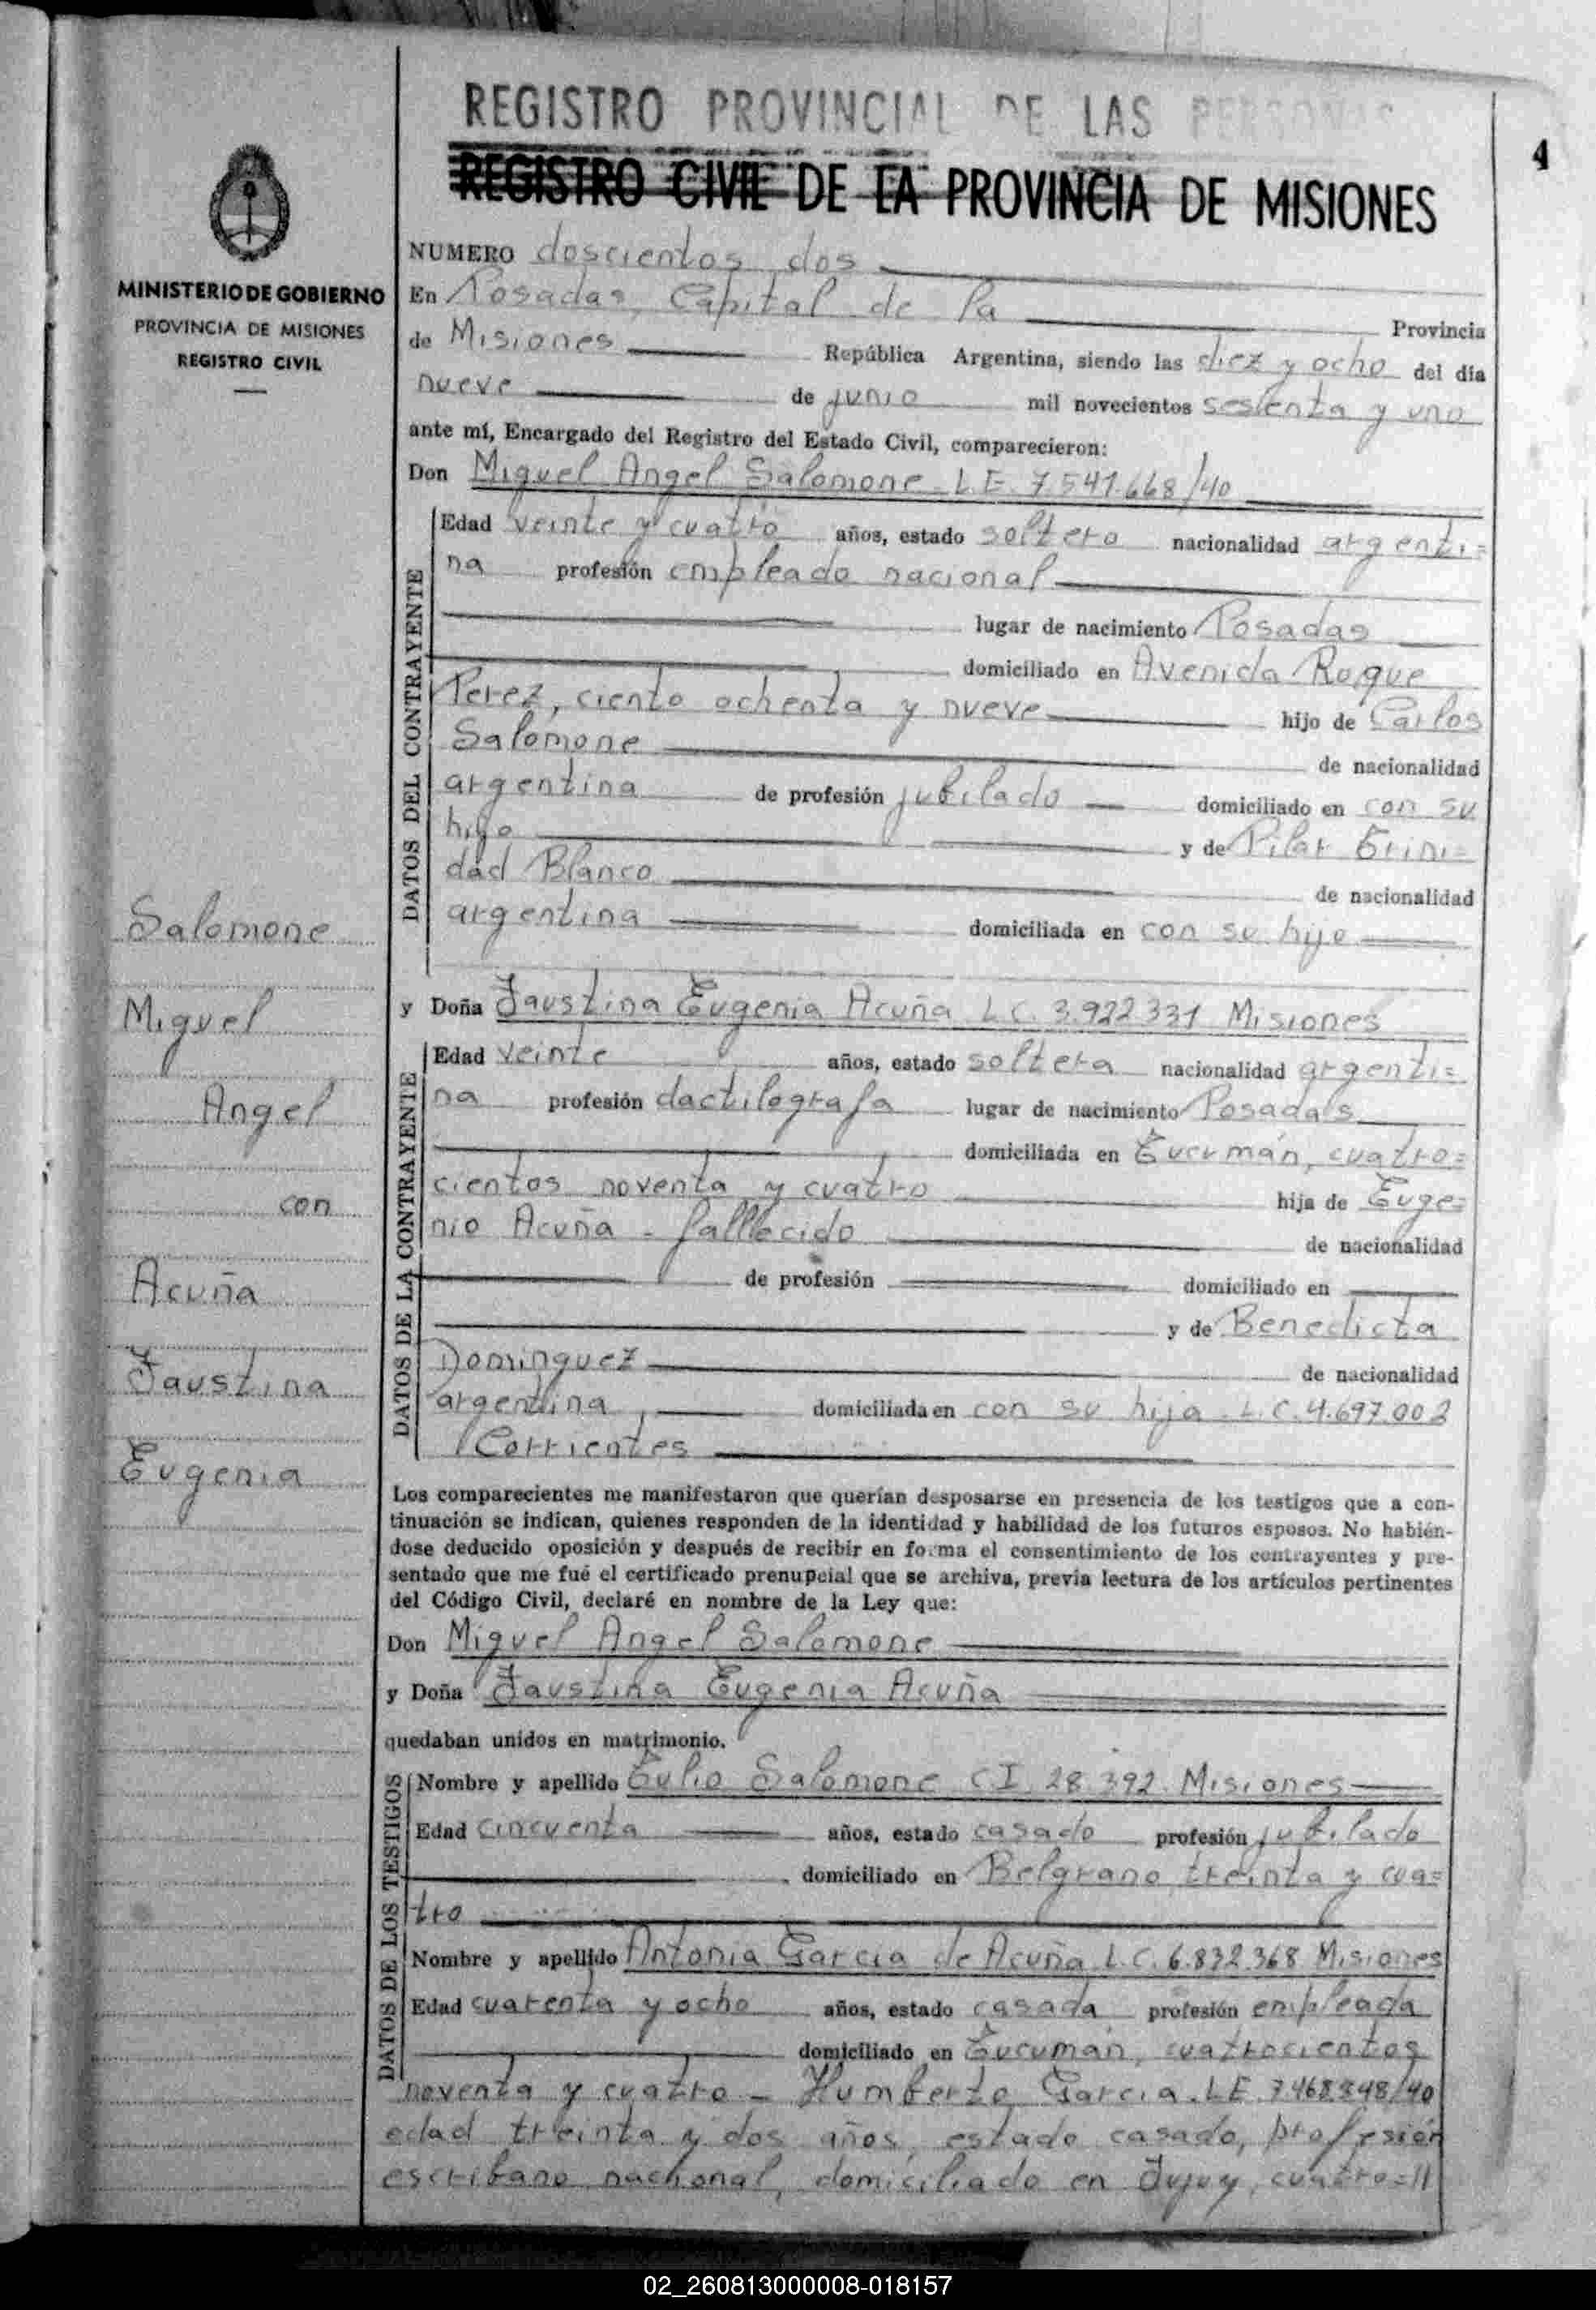 REGISTRO PROVINCIAL DE LAS PERSONAS
4
REGISTRO CIVIL DE LA PROVINCIA DE MISIONES
MINISTERIO DE GOBIERNO
PROVINCIA DE MISIONES
REGISTRO CIVIL
NUMERO doscientos dos
En Posadas, Capital de la Provincia
de Misiones República Argentina, siendo las diez y ocho del día
nueve de junio mil novecientos sesenta y uno
ante mí, Encargado del Registro del Estado Civil, comparecieron:
Don Miguel Angel Salomone L.E. 7.541.668/40
DATOS DEL CONTRAYENTE
Edad veinte y cuatro años, estado soltero nacionalidad argenti=
na profesión empleado nacional
lugar de nacimiento Posadas
domiciliado en Avenida Roque
Perez, ciento ochenta y nueve hijo de Carlos
Salomone de nacionalidad
argentina de profesión jubilado domiciliado en con su
hijo y de Pilar Trini=
dad Blanco de nacionalidad
argentina domiciliada en con su hijo
Salomone
Miguel
Angel
con
Acuña
Faustina
Eugenia
y Doña Faustina Eugenia Acuña L.C. 3.922.331 Misiones
DATOS DE LA CONTRAYENTE
Edad veinte años, estado soltera nacionalidad argenti=
na profesión dactilografa lugar de nacimiento Posadas
domiciliada en Tucumán, cuatro=
cientos noventa y cuatro hija de Euge=
nio Acuña - fallecido de nacionalidad
de profesión domiciliado en
y de Benedicta
Dominguez de nacionalidad
argentina, domiciliada en con su hija. L.C. 4.697.002
Corrientes
Los comparecientes me manifestaron que querían desposarse en presencia de los testigos que a con-
tinuación se indican, quienes responden de la identidad y habilidad de los futuros esposos. No habién-
dose deducido oposición y después de recibir en forma el consentimiento de los contrayentes y pre-
sentado que me fué el certificado prenupcial que se archiva, previa lectura de los artículos pertinentes
del Código Civil, declaré en nombre de la Ley que:
Don Miguel Angel Salomone
y Doña Faustina Eugenia Acuña
quedaban unidos en matrimonio.
DATOS DE LOS TESTIGOS
Nombre y apellido Tulio Salomone C.I. 28.392 Misiones
Edad cincuenta años, estado casado profesión jubilado
domiciliado en Belgrano treinta y cua=
tro
Nombre y apellido Antonia Garcia de Acuña L.C. 6.832.368 Misiones
Edad cuarenta y ocho años, estado casada profesión empleada
domiciliado en Tucumán, cuatrocientos
noventa y cuatro - Humberto Garcia. L.E. 7.468.848/40
edad treinta y dos años, estado casado, profesión
escribano nacional, domiciliado en Jujuy, cuatro=//
02_260813000008-018157